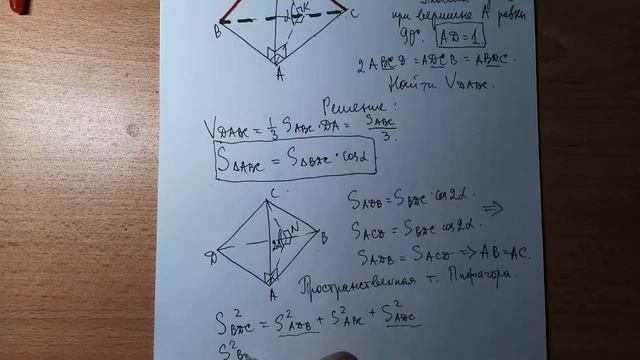 при вершине А равны
90°. AD=1
2ABCD = ADCB = ABDC.
Найти V_DABC.
Решение:
V_DABC = 1/3 S_ABC · DA = S_ABC/3.
S_ΔABC = S_ΔBDC · cos α
S_ADB = S_BDC · cos 2α.
S_ACD = S_BDC cos 2α. ⇒
S_ADB = S_ACD ⇒ AB = AC.
Пространственная т. Пифагора.
S²_BDC = S²_ADB + S²_ABC + S²_ADC
S²_B
B
C
A
K
α
C
D
B
A
N
2α